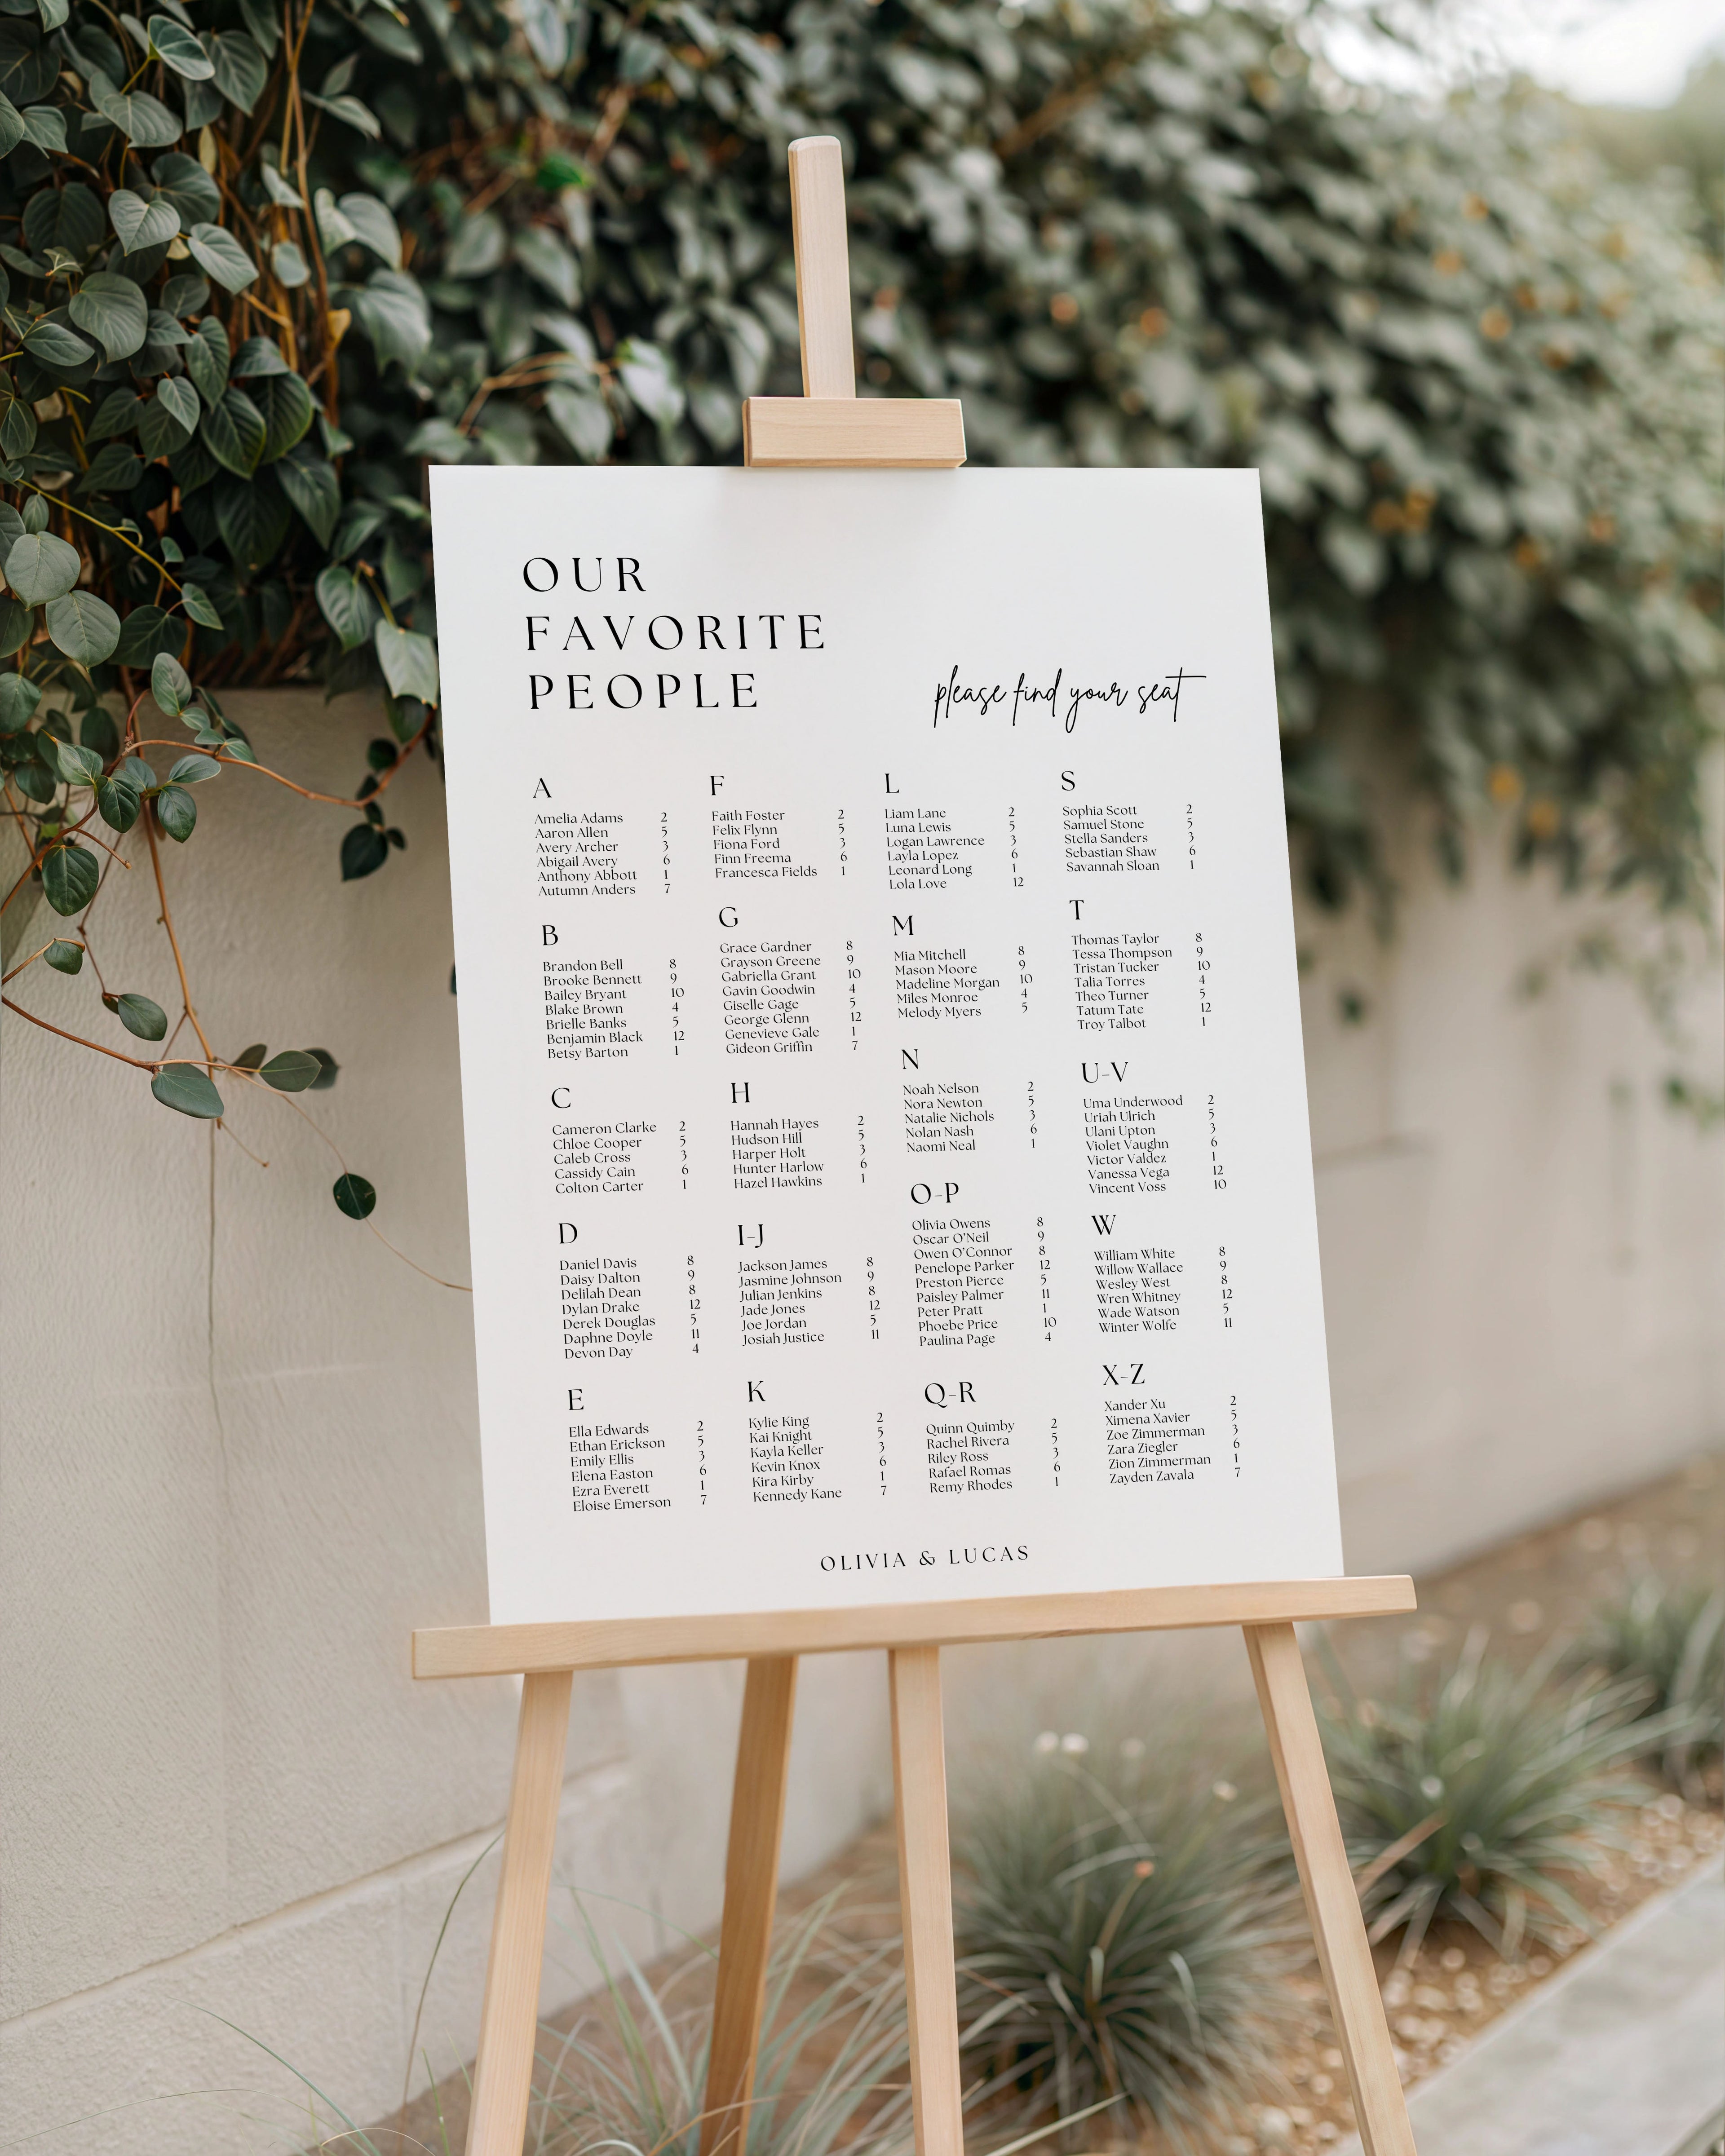 OUR
FAVORITE
PEOPLE
please find your seat
A
Amelia Adams 2
Aaron Allen 5
Avery Archer 3
Abigail Avery 6
Anthony Abbott 1
Autumn Anders 7
B
Brandon Bell 8
Brooke Bennett 9
Bailey Bryant 10
Blake Brown 4
Brielle Banks 5
Benjamin Black 12
Betsy Barton 1
C
Cameron Clarke 2
Chloe Cooper 5
Caleb Cross 3
Cassidy Cain 6
Colton Carter 1
D
Daniel Davis 8
Daisy Dalton 9
Delilah Dean 8
Dylan Drake 12
Derek Douglas 5
Daphne Doyle 11
Devon Day 4
E
Ella Edwards 2
Ethan Erickson 5
Emily Ellis 3
Elena Easton 6
Ezra Everett 1
Eloise Emerson 7
F
Faith Foster 2
Felix Flynn 5
Fiona Ford 3
Finn Freema 6
Francesca Fields 1
G
Grace Gardner 8
Grayson Greene 9
Gabriella Grant 10
Gavin Goodwin 4
Giselle Gage 5
George Glenn 12
Genevieve Gale 1
Gideon Griffin 7
H
Hannah Hayes 2
Hudson Hill 5
Harper Holt 3
Hunter Harlow 6
Hazel Hawkins 1
I-J
Jackson James 8
Jasmine Johnson 9
Julian Jenkins 8
Jade Jones 12
Joe Jordan 5
Josiah Justice 11
K
Kylie King 2
Kai Knight 5
Kayla Keller 3
Kevin Knox 6
Kira Kirby 1
Kennedy Kane 7
L
Liam Lane 2
Luna Lewis 5
Logan Lawrence 3
Layla Lopez 6
Leonard Long 1
Lola Love 12
M
Mia Mitchell 8
Mason Moore 9
Madeline Morgan 10
Miles Monroe 4
Melody Myers 5
N
Noah Nelson 2
Nora Newton 5
Natalie Nichols 3
Nolan Nash 6
Naomi Neal 1
O-P
Olivia Owens 8
Oscar O'Neil 9
Owen O'Connor 8
Penelope Parker 12
Preston Pierce 5
Paisley Palmer 11
Peter Pratt 1
Phoebe Price 10
Paulina Page 4
Q-R
Quinn Quimby 2
Rachel Rivera 5
Riley Ross 3
Rafael Romas 6
Remy Rhodes 1
S
Sophia Scott 2
Samuel Stone 5
Stella Sanders 3
Sebastian Shaw 6
Savannah Sloan 1
T
Thomas Taylor 8
Tessa Thompson 9
Tristan Tucker 10
Talia Torres 4
Theo Turner 5
Tatum Tate 12
Troy Talbot 1
U-V
Uma Underwood 2
Uriah Ulrich 5
Ulani Upton 3
Violet Vaughn 6
Victor Valdez 1
Vanessa Vega 12
Vincent Voss 10
W
William White 8
Willow Wallace 9
Wesley West 8
Wren Whitney 12
Wade Watson 5
Winter Wolfe 11
X-Z
Xander Xu 2
Ximena Xavier 5
Zoe Zimmerman 3
Zara Ziegler 6
Zion Zimmerman 1
Zayden Zavala 7
OLIVIA & LUCAS